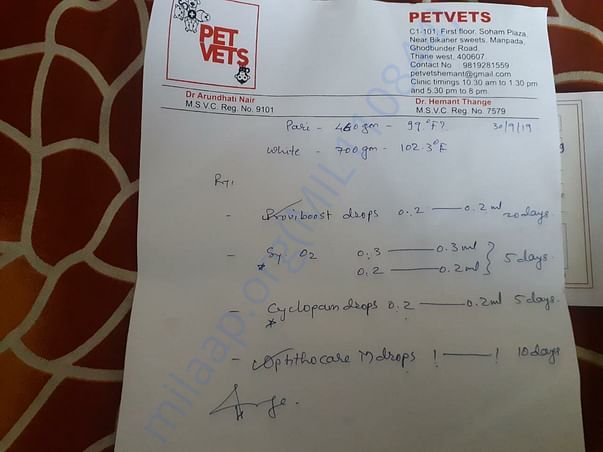 PET
VETS
PETVETS
C1-101, First floor, Soham Plaza,
Near Bikaner sweets, Manpada,
Ghodbunder Road
Thane west, 400607
Contact No 9819281559
petvetshemant@gmail.com
Clinic timings 10.30 am to 1.30 pm
and 5.30 pm to 8 pm.
Dr Arundhati Nair
M.S.V.C. Reg. No. 9101
Dr. Hemant Thange
M.S.V.C. Reg. No. 7579
Pari - 460gm - 99.°F? 30/9/19
White - 700gm - 102.3°F
- Proviboost drops 0.2 — 0.2ml 20 days
- Sy. O2 0.3 — 0.3ml
0.2 — 0.2ml } 5 days.
- Cyclopam drops 0.2 — 0.2ml 5 days.
- Ophthocare drops ! — ! 10 days
milaap.org